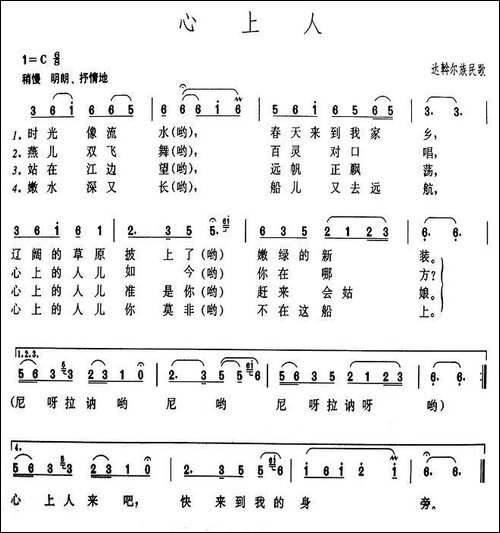 心上人
1=C 6/8
稍慢 明朗、抒情地
达斡尔族民歌
3 6 i 6 6 5 6 6 6 i 6 3 5 6 i 6 5 6 5 3. 3.
1.时光 像流 水(哟), 春天来到我家 乡,
2.燕儿 双飞 舞(哟), 百灵对口 唱,
3.站在 江边 望(哟), 远帆正飘 荡,
4.嫩水 深又 长(哟), 船儿又去远 航,
3 6 i 6 1 2. 3 5. 6 2 3 5 2 1 2 3 6. 6.
辽阔的草原披上了(哟) 嫩绿的新 装。
心上的人儿如今(哟) 你在哪 方?
心上的人儿准是你(哟) 赶来会姑 娘。
心上的人儿你莫非(哟) 不在这船 上。
1.2.3.
5 6 3 3 2 3 1 0 2. 3 5 5 6 5 6 3 5 2 1 2 3 6. 6.
(尼呀拉讷哟 尼哟 尼呀拉讷呀 哟)
4.
5 6 3 3 2 3 1 0 2. 3 5 5 6 i 6 i 2 i 6. 6.
心上人来吧, 快来到我的身 旁。